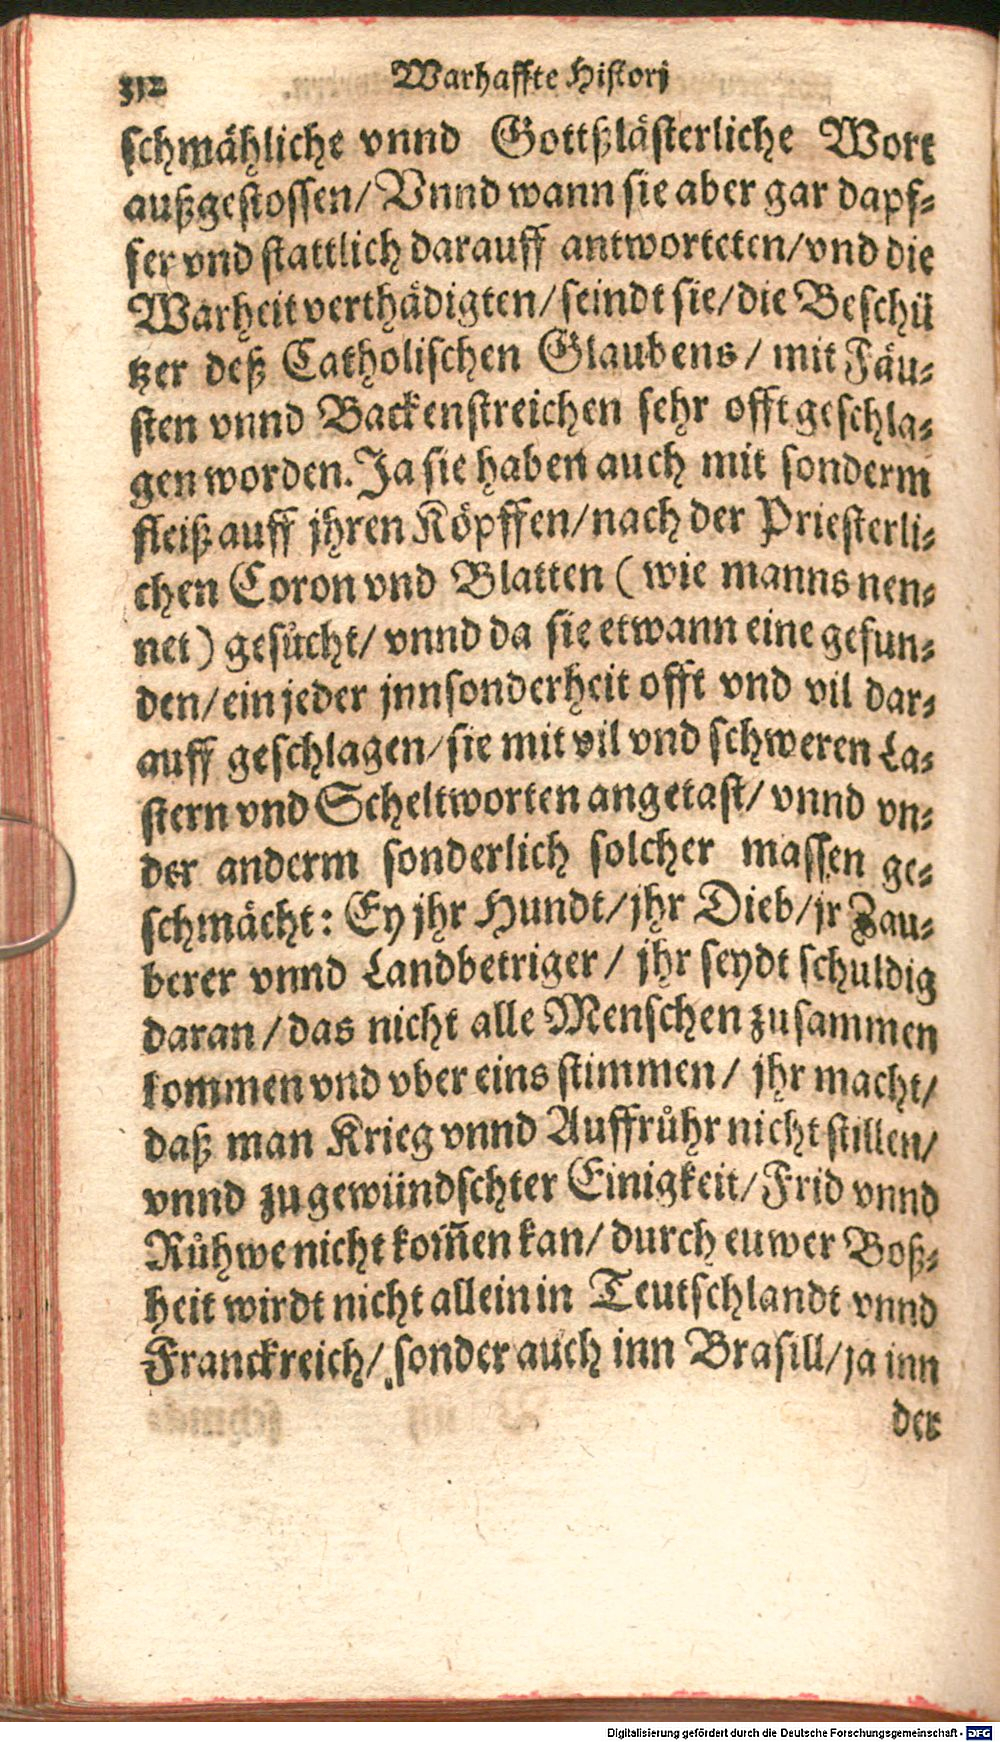 312 Warhaffte Histori
schmähliche vnnd Gottßlästerliche Wort
außgestossen/ Vnnd wann sie aber gar dapf⸗
fer vnd stattlich darauff antworteten/ vnd die
Warheit verthädigten/ seindt sie/ die Beschü
tzer deß Catholischen Glaubens/ mit Fäu⸗
sten vnnd Backenstreichen sehr offt geschla⸗
gen worden. Ja sie haben auch mit sonderm
fleiß auff jhren Köpffen/ nach der Priesterli⸗
chen Coron vnd Blatten ( wie manns nen⸗
net ) gesůcht/ vnnd da sie etwann eine gefun⸗
den/ ein jeder jnnsonderheit offt vnd vil dar⸗
auff geschlagen/ sie mit vil vnd schweren La⸗
stern vnd Scheltworten angetast/ vnnd vn⸗
der anderm sonderlich solcher massen ge⸗
schmächt: Ey jhr Hundt/ jhr Dieb/ jr Zau⸗
berer vnnd Landbetriger/ jhr seydt schuldig
daran/ das nicht alle Menschen zusammen
kommen vnd vber eins stimmen/ jhr macht/
daß man Krieg vnnd Auffrůhr nicht stillen/
vnnd zu gewündschter Einigkeit/ Frid vnnd
Růhwe nicht kom̃en kan/ durch euwer Boß⸗
heit wirdt nicht allein in Teutschlandt vnnd
Franckreich/ sonder auch inn Brasill/ ja inn
der
Digitalisierung gefördert durch die Deutsche Forschungsgemeinschaft - DFG